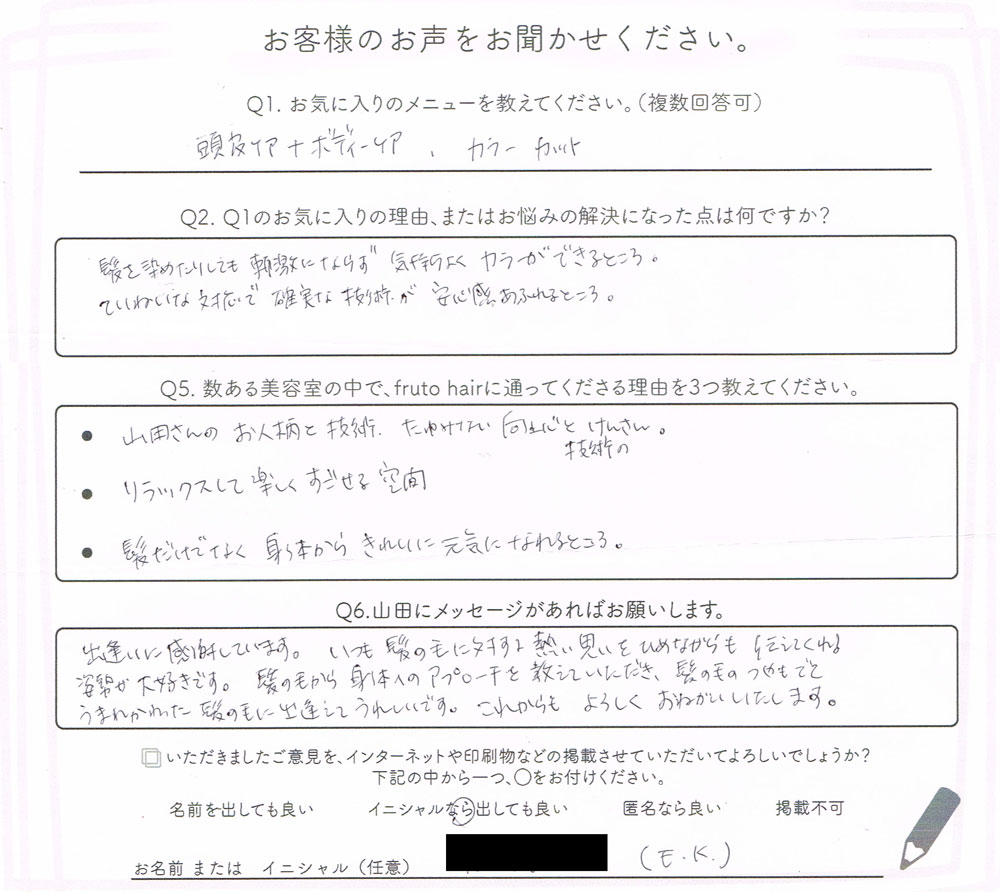 お客様のお声をお聞かせください。
Q1. お気に入りのメニューを教えてください。(複数回答可)
頭皮ケア+ボディーケア 、 カラー カット
Q2. Q1のお気に入りの理由、またはお悩みの解決になった点は何ですか?
髪を染めたりしても 刺激にならず 気持ちよく カラーができるところ。
ていねいな対応で 確実な技術が 安心感あふれるところ。
Q5. 数ある美容室の中で、fruto hairに通ってくださる理由を3つ教えてください。
● 山田さんの お人柄と 技術. たゆけない 向上心と けんさん。
技術の
● リラックスして 楽しく すごせる 空間
● 髪だけでなく 身体から きれいに 元気に なれるところ。
Q6.山田にメッセージがあればお願いします。
出逢いに感謝しています。 いつも 髪の毛に対する 熱い思いを ひめながらも 伝えてくれる
姿勢が 大好きです。 髪の毛から 身体へのアプローチを 教えていただき、 髪の毛の つやもでて
うまれかわった 髪の毛に 出逢えて うれしいです。 これからも よろしく おねがいいたします。
いただきましたご意見を、インターネットや印刷物などの掲載させていただいてよろしいでしょうか?
下記の中から一つ、〇をお付けください。
名前を出しても良い イニシャルなら出しても良い 匿名なら良い 掲載不可
お名前 または イニシャル (任意) (E.K.)